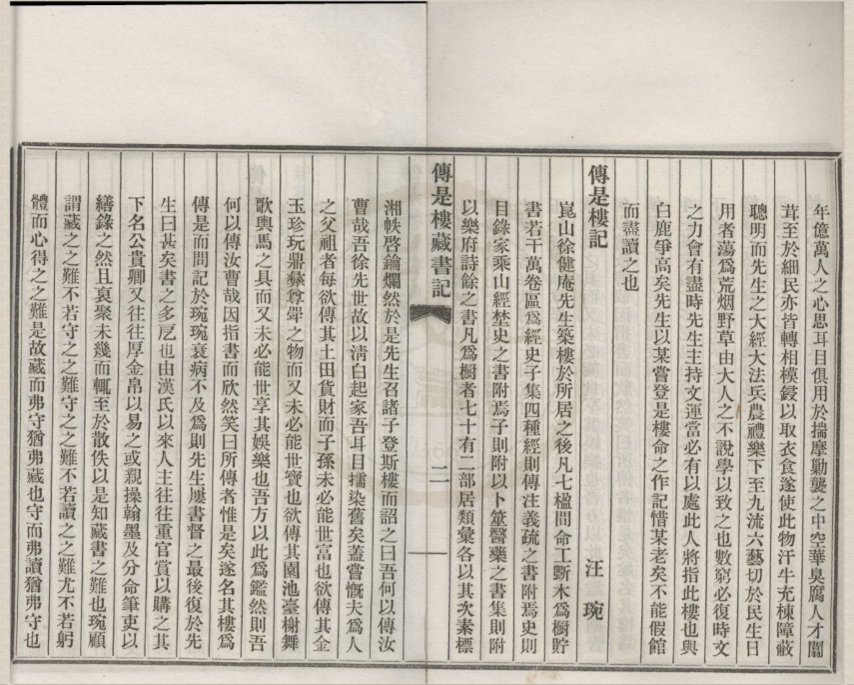 年億萬人之心思耳目俱用於揣摩勦襲之中空華臭腐人才闒
茸至於細民亦皆轉相模鋟以取衣食遂使此物汗牛充棟障蔽
聰明而先生之大經大法兵農禮樂下至九流六藝切於民生日
用者蕩爲荒烟野草由大人之不說學以致之也數窮必復時文
之力會有盡時先生主持文運當必有以處此人將指此樓也與
白鹿爭高矣先生以某嘗登是樓命之作記惜某老矣不能假館
而盡讀之也
傳是樓記
汪琬
崑山徐健庵先生築樓於所居之後凡七楹間命工斲木爲櫥貯
書若干萬卷區爲經史子集四種經則傳注義疏之書附焉史則
目錄家乘山經埜史之書附焉子則附以卜筮醫藥之書集則附
以樂府詩餘之書凡爲櫥者七十有二部居類彙各以其次素標
傳是樓藏書記
二
湘帙啓鑰爛然於是先生召諸子登斯樓而詔之曰吾何以傳汝
曹哉吾徐先世故以清白起家吾耳目擩染舊矣蓋嘗慨夫爲人
之父祖者每欲傳其土田貨財而子孫未必能世富也欲傳其金
玉珍玩鼎彝尊斝之物而又未必能世寶也欲傳其園池臺榭舞
歌輿馬之具而又未必能世享其娛樂也吾方以此爲鑑然則吾
何以傳汝曹哉因指書而欣然笑曰所傳者惟是矣遂名其樓爲
傳是而問記於琬琬衰病不及爲則先生屢書督之最後復於先
生曰甚矣書之多戹也由漢氏以來人主往往重官賞以購之其
下名公貴卿又往往厚金帛以易之或親操翰墨及分命筆吏以
繕錄之然且裒聚未幾而輒至於散佚以是知藏書之難也琬顧
謂藏之之難不若守之之難守之之難不若讀之之難尤不若躬
體而心得之之難是故藏而弗守猶弗藏也守而弗讀猶弗守也